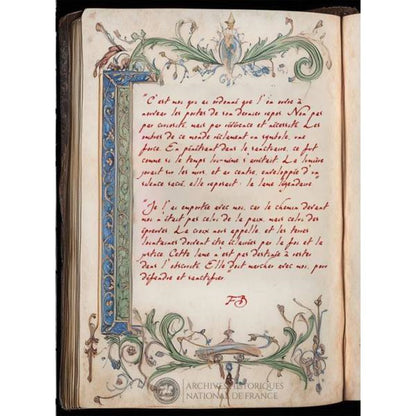 "C'est moi qui ai ordonné que l'on ouvre à
nouveau les portes de son dernier repos. Non pas
par curiosité, mais par révérence et nécessité. Les
ombres de ce monde réclament un symbole, une
force. En pénétrant dans le sanctuaire, ce fut
comme si le temps lui-même s'arrêtait. La lumière
jouait sur les murs, et au centre, enveloppée d'un
silence sacré, elle reposait : la lame légendaire.
"Je l'ai emportée avec moi, car le chemin devant
moi n'était pas celui de la paix, mais celui des
épreuves. La croix nous appelle et les terres
lointaines doivent être éclairées par la foi et la
justice. Cette lame n'est pas destinée à rester
dans l'obscurité. Elle doit marcher avec moi, pour
défendre et sanctifier.
FB
ARCHIVES HISTORIQUES
NATIONAL DE FRANCE